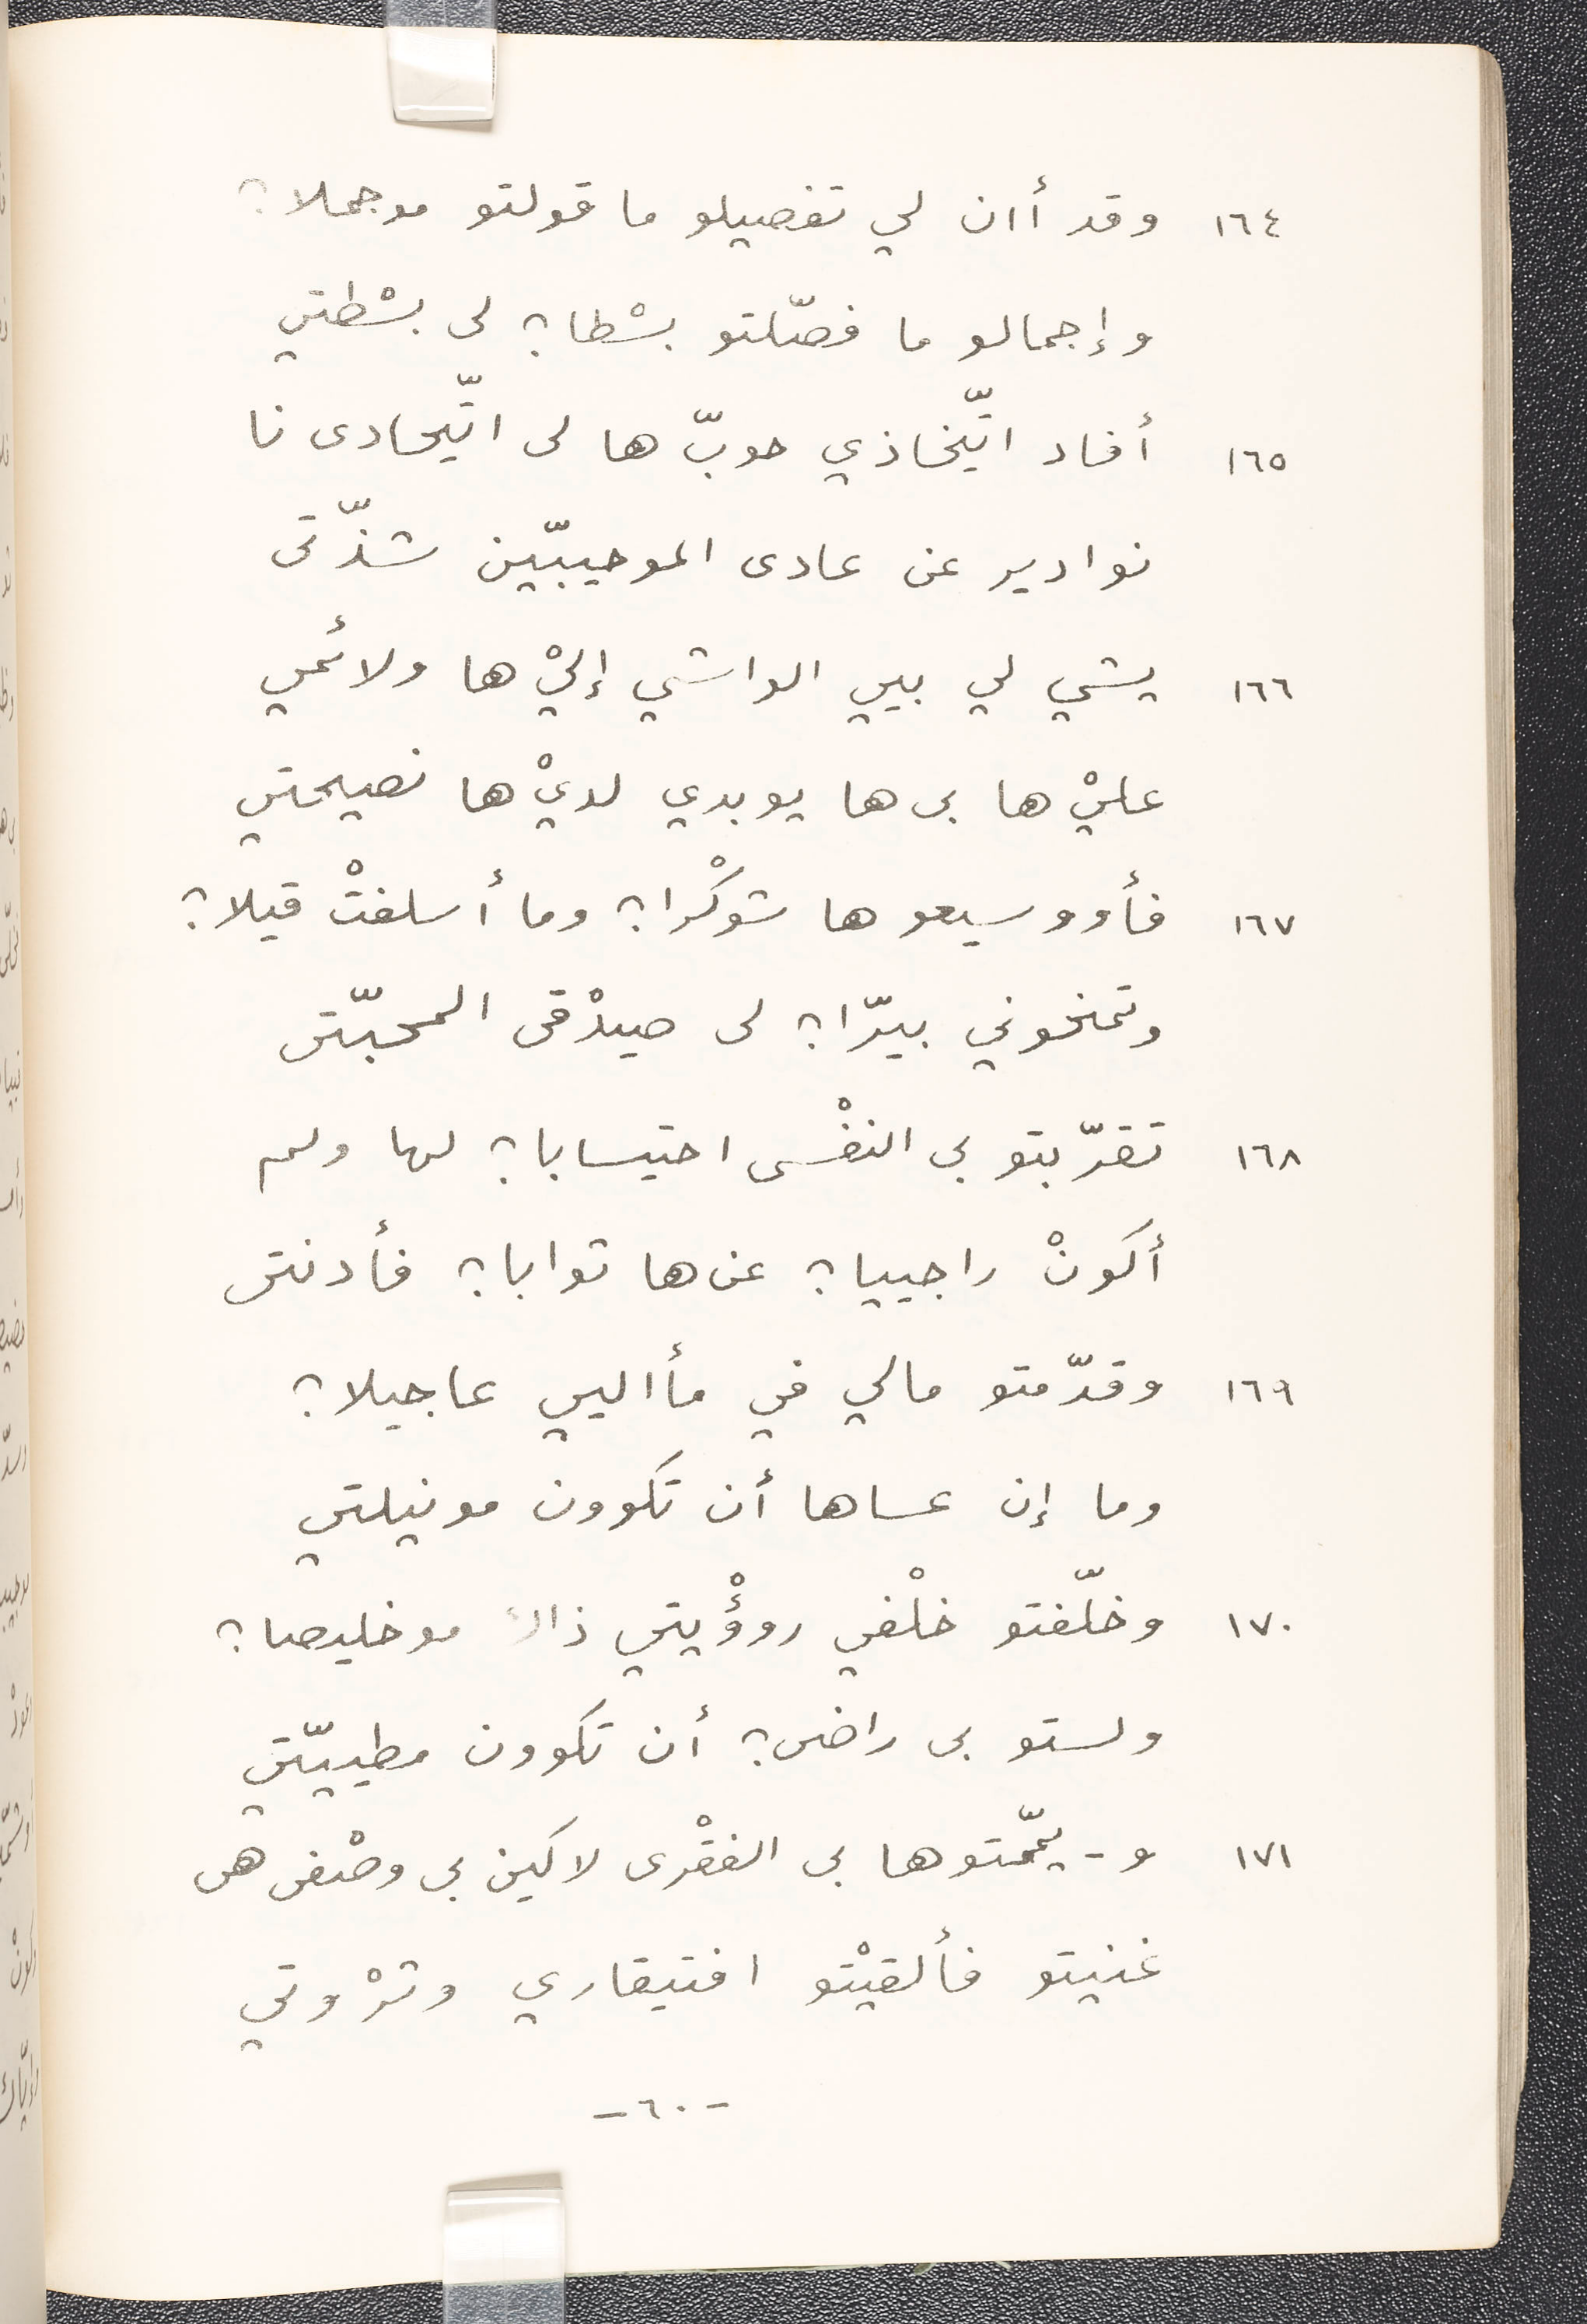 ١٦٤ وقد أان لي تفصيلو ما قولتو موجملا؟
وإجمالو ما فصّلتو بسْطا؟ لى بسْطتي
١٦٥ أفاد اتّيخاذي حوبّ ها لى اتّيحادى نا
نوادير عن عادى الموحيبّين شذّتى
١٦٦ يشي لي بيي الواشي إليْ ها ولائمي
عليْ ها بى ها يوبدي لديْ ها نصيحتي
١٦٧ فأووسيعو ها شوكْرا؟ وما أسلفتْ قيلا؟
وتمنحوني بيرّا؟ لى صيدْقى المحبّتى
١٦٨ تقرّبتو بى النفْسى احتيسابا؟ لها ولم
أكونْ راجييا؟ عن ها توابا؟ فأدنتى
١٦٩ وقدّمتو مالي في مأاليي عاجيلا؟
وما إن عساها أن تكوون مونيلتي
١٧٠ وخلّفتو خلْفي روؤْيتي ذاك موخليصا؟
ولستو بى راضى؟ أن تكوون مطييّتي
١٧١ و - يمّمتوها بى الفقْرى لاكين بى وصْفى هى
غنيتو فألقيْتو افتيقاري وترْوتي
- ٦٠ -